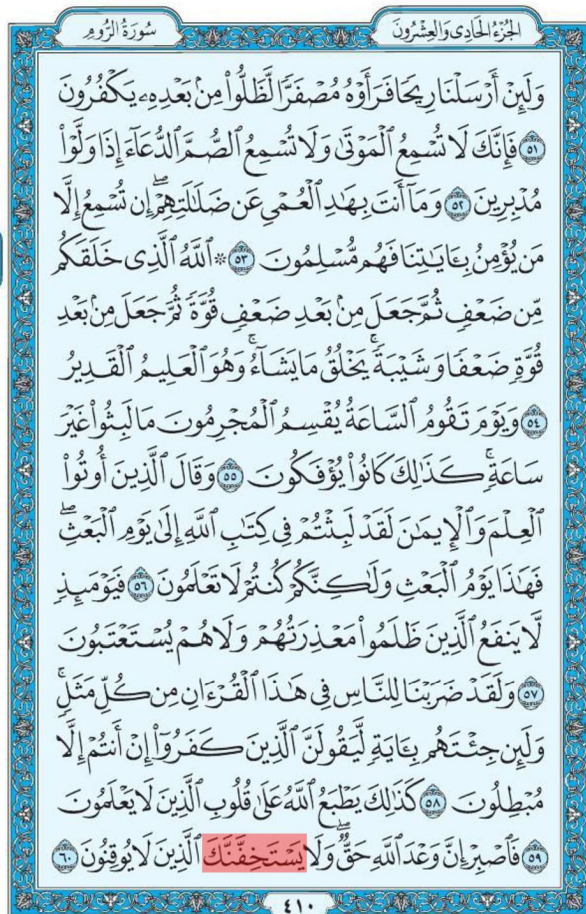 الجُزْءُ الحَادِي وَالعِشْرُونَ
سُورَةُ الرُّومِ
وَلَئِنْ أَرْسَلْنَا رِيحًا فَرَأَوْهُ مُصْفَرًّا لَّظَلُّوا۟ مِنۢ بَعْدِهِۦ يَكْفُرُونَ
٥١ فَإِنَّكَ لَا تُسْمِعُ ٱلْمَوْتَىٰ وَلَا تُسْمِعُ ٱلصُّمَّ ٱلدُّعَآءَ إِذَا وَلَّوْا۟
مُدْبِرِينَ ٥٢ وَمَآ أَنتَ بِهَٰدِ ٱلْعُمْىِ عَن ضَلَٰلَتِهِمْ ۖ إِن تُسْمِعُ إِلَّا
مَن يُؤْمِنُ بِـَٔايَٰتِنَا فَهُم مُّسْلِمُونَ ٥٣ ۞ ٱللَّهُ ٱلَّذِى خَلَقَكُم
مِّن ضَعْفٍ ثُمَّ جَعَلَ مِنۢ بَعْدِ ضَعْفٍ قُوَّةً ثُمَّ جَعَلَ مِنۢ بَعْدِ
قُوَّةٍ ضَعْفًا وَشَيْبَةً ۚ يَخْلُقُ مَا يَشَآءُ ۚ وَهُوَ ٱلْعَلِيمُ ٱلْقَدِيرُ
٥٤ وَيَوْمَ تَقُومُ ٱلسَّاعَةُ يُقْسِمُ ٱلْمُجْرِمُونَ مَا لَبِثُوا۟ غَيْرَ
سَاعَةٍ ۚ كَذَٰلِكَ كَانُوا۟ يُؤْفَكُونَ ٥٥ وَقَالَ ٱلَّذِينَ أُوتُوا۟
ٱلْعِلْمَ وَٱلْإِيمَٰنَ لَقَدْ لَبِثْتُمْ فِى كِتَٰبِ ٱللَّهِ إِلَىٰ يَوْمِ ٱلْبَعْثِ ۖ
فَهَٰذَا يَوْمُ ٱلْبَعْثِ وَلَٰكِنَّكُمْ كُنتُمْ لَا تَعْلَمُونَ ٥٦ فَيَوْمَئِذٍ
لَّا يَنفَعُ ٱلَّذِينَ ظَلَمُوا۟ مَعْذِرَتُهُمْ وَلَا هُمْ يُسْتَعْتَبُونَ
٥٧ وَلَقَدْ ضَرَبْنَا لِلنَّاسِ فِى هَٰذَا ٱلْقُرْءَانِ مِن كُلِّ مَثَلٍ ۚ
وَلَئِن جِئْتَهُم بِـَٔايَةٍ لَّيَقُولَنَّ ٱلَّذِينَ كَفَرُوٓا۟ إِنْ أَنتُمْ إِلَّا
مُبْطِلُونَ ٥٨ كَذَٰلِكَ يَطْبَعُ ٱللَّهُ عَلَىٰ قُلُوبِ ٱلَّذِينَ لَا يَعْلَمُونَ
٥٩ فَٱصْبِرْ إِنَّ وَعْدَ ٱللَّهِ حَقٌّ ۖ وَلَا يَسْتَخِفَّنَّكَ ٱلَّذِينَ لَا يُوقِنُونَ ٦٠
٤١٠